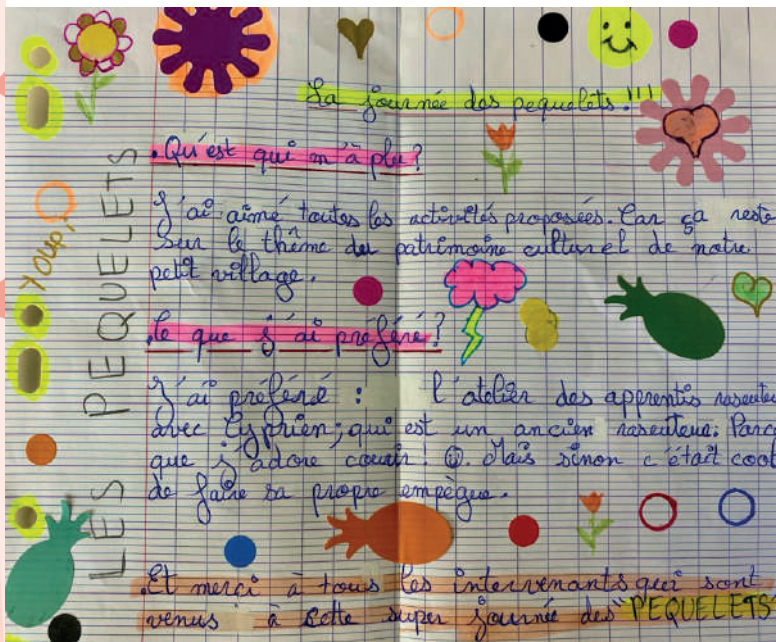 La journée des pequelets!!!
.Qu'est qui m'à plu?
J'ai aimé toutes les activités proposées. Car ça reste
Sur le thème du patrimoine culturel de notre
petit village.
.Ce que j'ai préféré?
J'ai préféré : l'atelier des apprentis raseteu
avec Cyprien; qui est un ancien raseuteur: Parce
que j'adore courir! Mais sinon c'était cool
de faire sa propre empègue.
.Et merçi à tous les intervenants qui sont
venus à cette super journée des "PEQUELETS"
LES PEQUELETS
YOUPI